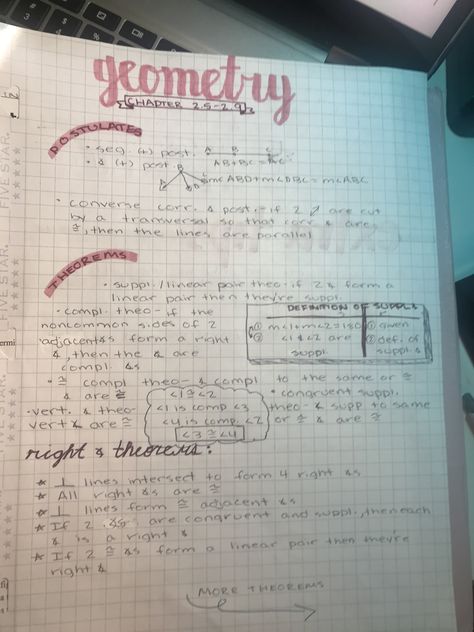 geometry
CHAPTER 2.5-2.9
POSTULATES
• seg. (+) post. A B C
AB+BC=AC
• ∡ (+) post. B
A D C m<ABD+m<DBC=m<ABC
• converse corr. ∡ post.-if 2 // are cut
by a transversal so that corr. ∡ are
≅, then the lines are parallel
THEOREMS
• suppl./linear pair theo-if 2 ∡ form a
linear pair then they're suppl.
• compl. theo-if the
noncommon sides of 2
adjacent ∡s form a right
∡, then the ∡ are
compl. ∡s
DEFINITION OF SUPPL ∡
① m<1+m<2=180 ① given
② <1 & <2 are suppl. ② def. of suppl. ∡s
• ≅ compl theo-∡ compl to the same or ≅
∡ are ≅
<1≅<2
<1 is comp <3
<4 is comp. <2
<3≅<4
• congruent suppl.
theo-∡ supp to same
or ≅ ∡ are ≅
• vert. ∡ theo-
vert ∡ are ≅
right ∡ theorems:
* ⊥ lines intersect to form 4 right ∡s
* All right ∡s are ≅
* ⊥ lines form ≅ adjacent ∡s
* If 2 ∡s are congruent and suppl., then each
∡ is a right ∡
* If 2 ≅ ∡s form a linear pair then they're
right ∡
MORE THEOREMS
FIVE STAR.
FIVE STAR.